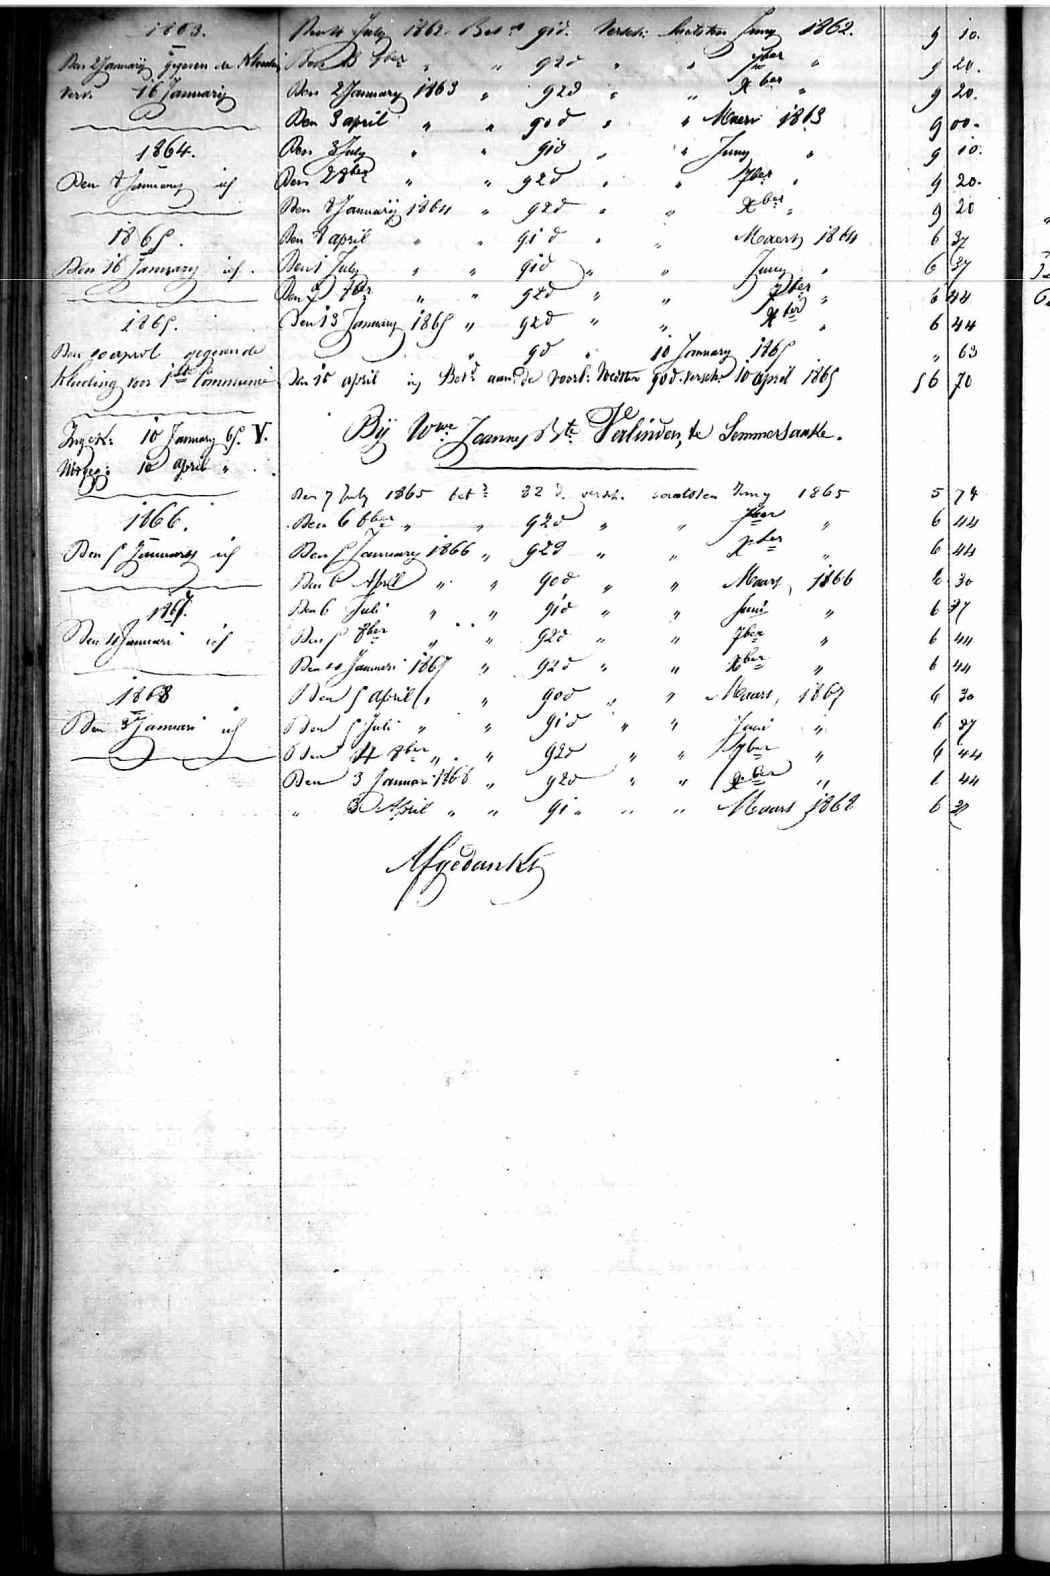 1863.
Den 2 Januarij gegeven de Kleeding
verv. 16 Januarij
1864.
Den 8 January ich
1865.
Den 16 January ich.
1865.
Den 10 april gegeven de
Kleeding voor 1ste Communie
Ingek: 10 January 65. V.
10 april "
1866.
Den 5 Januarij ich
1867.
Den 4 Januari ich
1868
Den 3 Januari ich
Den 4 July 1862 Bet. 91 d. Versch: laatsten Juny 1862. 9 10.
8ber " " 92 d " " 7ber " 9 20.
Den 2 January 1863 " 92 d " " Xber " 9 20.
Den 3 april " " 90 d " " Maers 1863 9 00.
Den 3 July " " 91 d " " Juny " 9 10.
Den 2 8ber " " 92 d " " 7ber " 9 20.
Den 8 Januarij 1864 " 92 d " " Xber " 9 20
Den 8 april " " 91 d " " Maers 1864 6 37
Den 1 July " " 91 d " " Juny " 6 37
Den 7 8ber " " 92 d " " 7ber " 6 44
Den 13 January 1865 " 92 d " " Xber " 6 44
9 d " 10 January 1865 " 63
Den 10 april " Bet. aan de voorl: Meester 90 d. versch. 10 april 1865 56 70
Bij Wwe Joannes Bte Verlinden, te Lemmersaake.
Den 7 July 1865 bet. 82 d. versch. laatsten Juny 1865 5 74
Den 6 8ber " " 92 d " " 7ber " 6 44
Den 5 January 1866 " 92 d " " Xber " 6 44
Den 6 April " " 90 d " " Maars, 1866 6 30
Den 6 Juli " " 91 d " " Juni " 6 37
Den 5 8ber " " 92 d " " 7ber " 6 44
Den 4 Januari 1867 " 92 d " " Xber " 6 44
Den 5 april " " 90 d " " Maars, 1867 6 30
Den 5 Juli " " 91 d " " Juni " 6 37
Den 4 8ber " " 92 d " " 7ber " 6 44
Den 3 Januari 1868 " 92 d " " Xber " 6 44
" 3 April " " 91 " " " Maars 1868 6
Afgedankt